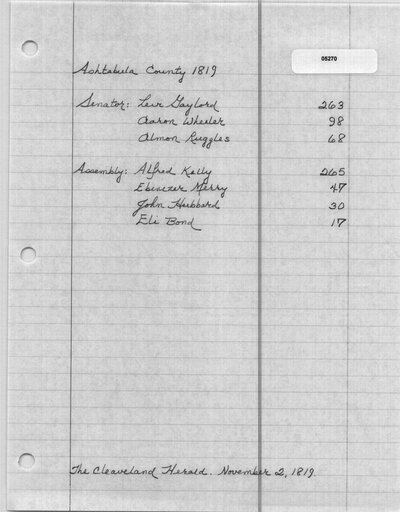 05270
Ashtabula County 1819
Senator: Levi Gaylord 263
Aaron Wheeler 98
Almon Ruggles 68
Assembly: Alfred Kelly 265
Ebenezer Merry 47
John Hubbard 30
Eli Bond 17
The Cleaveland Herald. November 2, 1819.